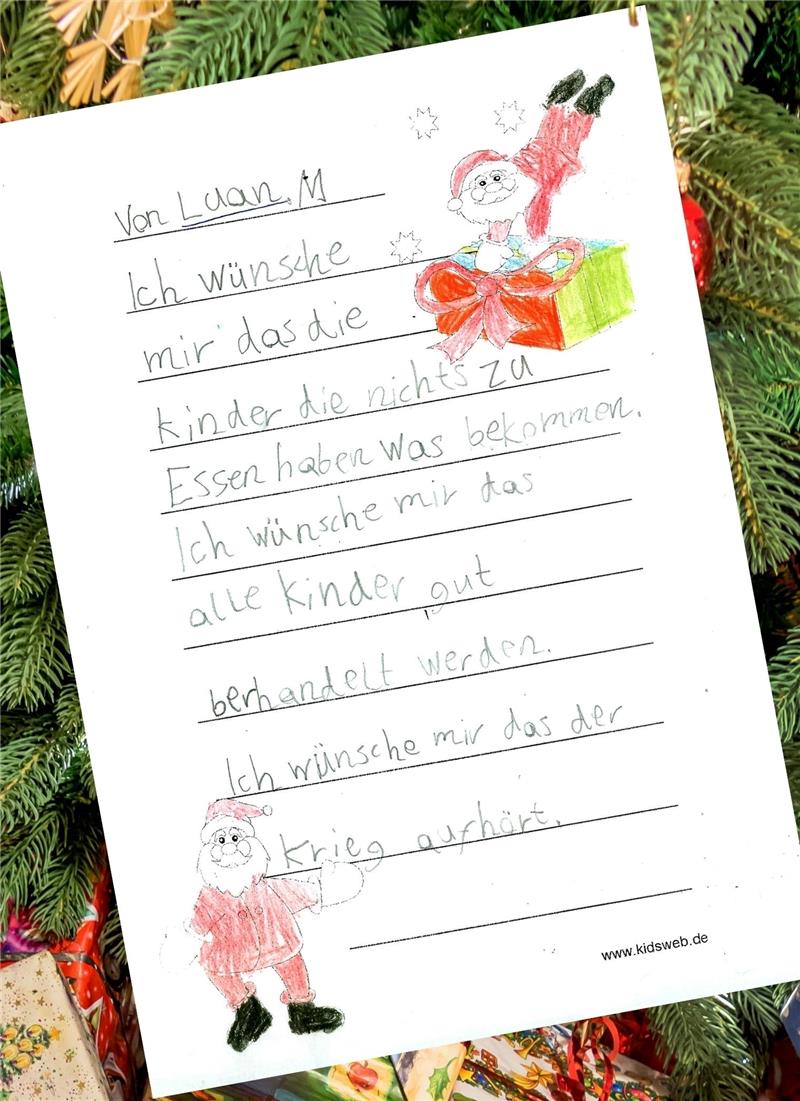 Von Luan.M
Ich wünsche
mir das die
kinder die nichts zu
Essen haben was bekommen.
Ich wünsche mir das
alle kinder gut
berhandelt werden.
Ich wünsche mir das der
Krieg aufhört.
www.kidsweb.de